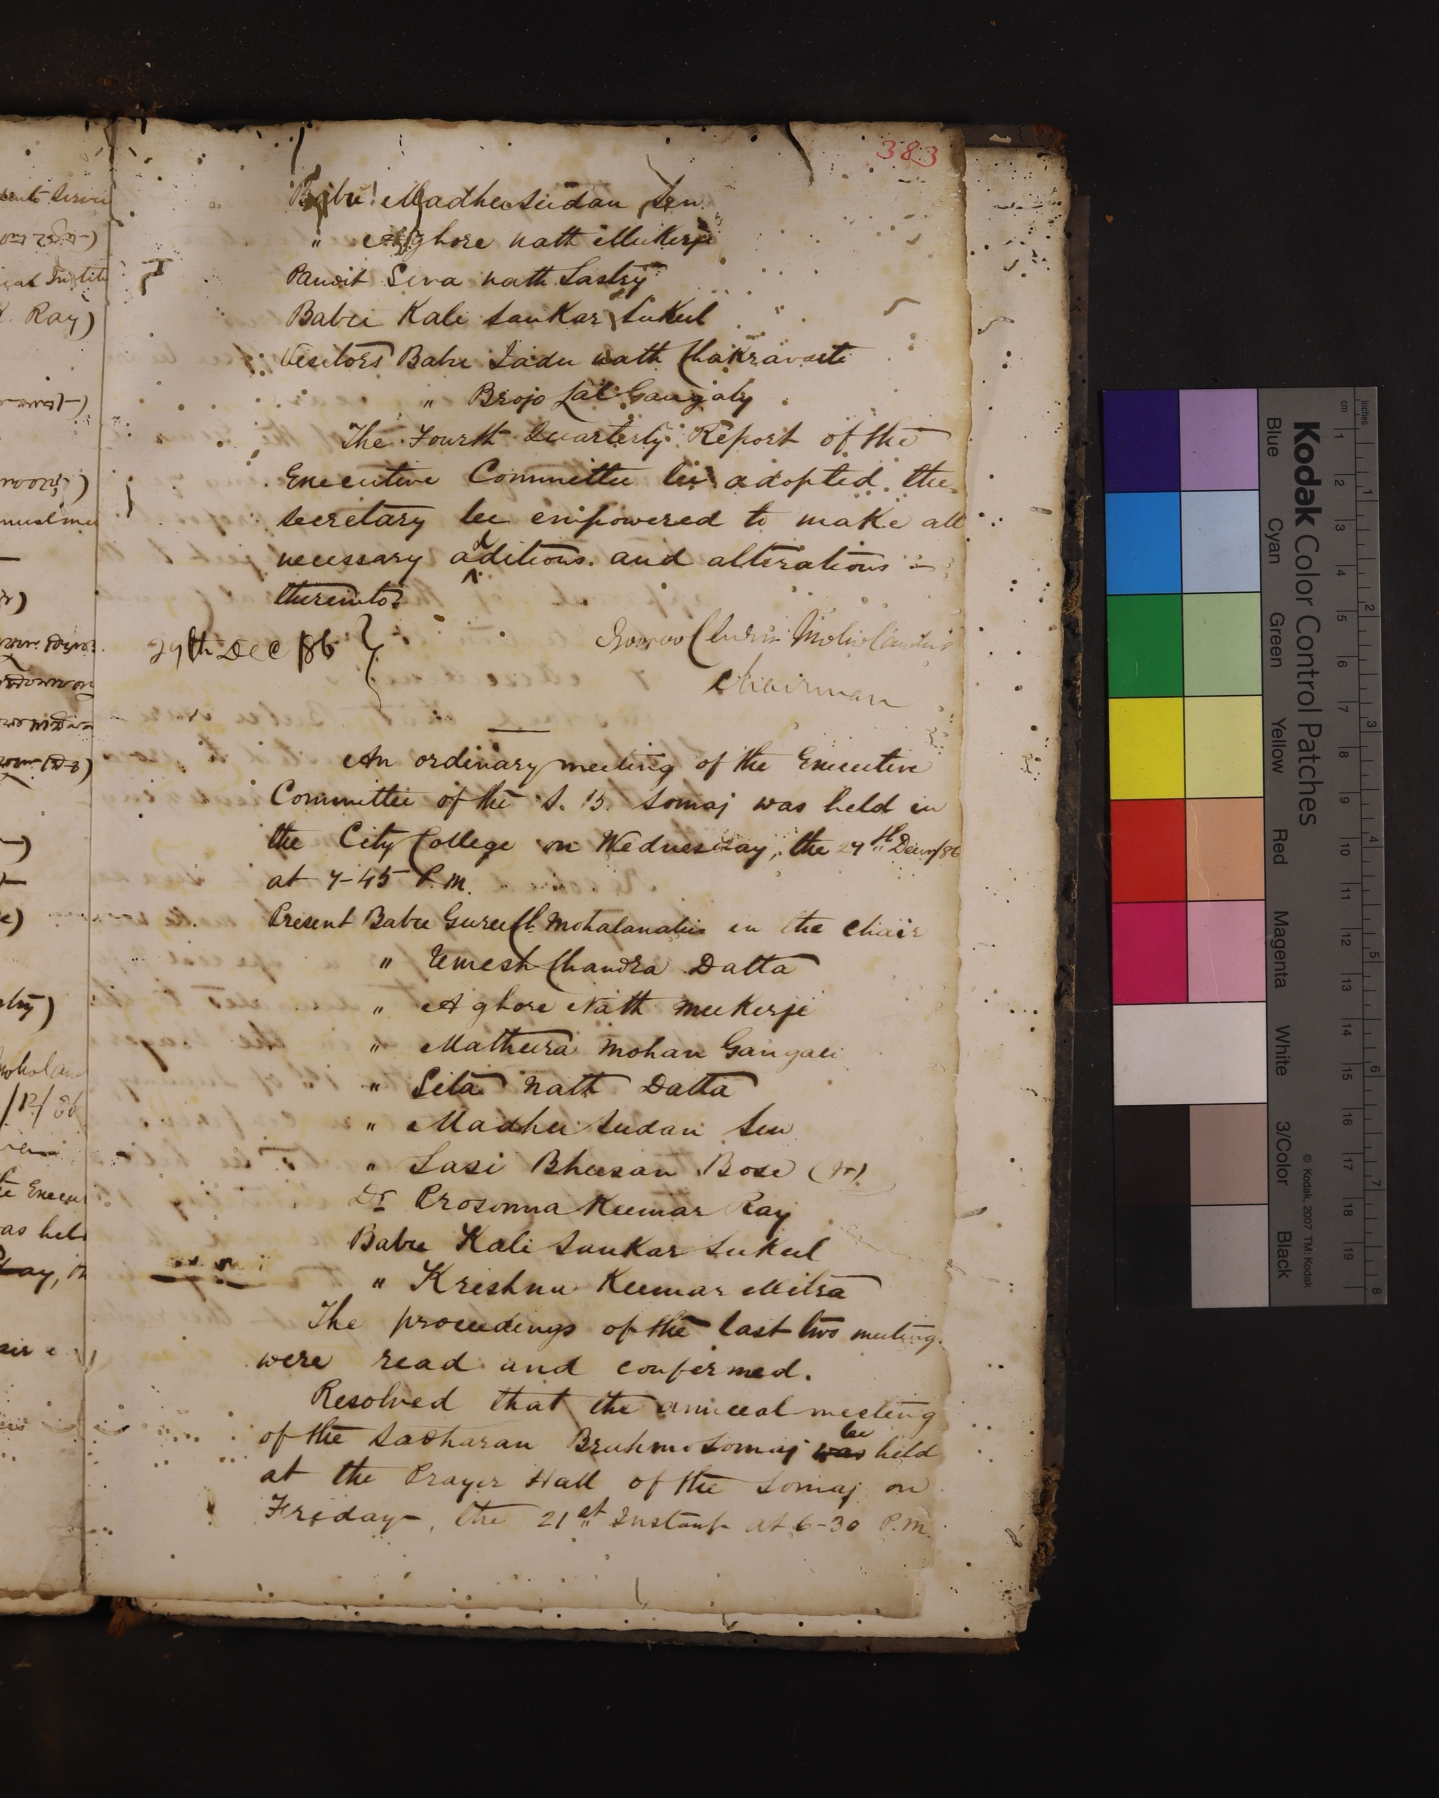 383
Babu Madhusudan Sen
" Aghore nath Mukerje
Pandit Siva nath Sastry
Babu Kali Sankar Sukul
Visitors Babu Jadu nath Chakravarti
" Brojo Lal Gangaly
The Fourth Quarterly Report of the
Executive Committee be adopted. the
Secretary be empowered to make all
necessary additions and alterations
thereinto.
29th Dec/86
Chairman
An ordinary meeting of the Executive
Committee of the S. B. Somaj was held in
the City College on Wednesday, the 29th Decr/86
at 7-45 P.M.
Present Babu Guru Ch. Mohalanabis in the chair
" Umesh Chandra Datta
" Aghore Nath Mukerje
" Mathura Mohan Gangali
" Sita Nath Datta
" Madhu Sudan Sen
" Sasi Bhusan Bose
Dr Prosonna Kumar Ray
Babu Kali Sankar Sukul
" Krishna Kumar Mitra
The proceedings of the last two meeting
were read and confirmed.
Resolved that the annual meeting
of the Sadharan Brahmo Somaj was be held
at the Prayer Hall of the Somaj on
Friday, the 21st Instant at 6-30 P.M.
K. Ray)
Kodak Color Control Patches
Blue Cyan Green Yellow Red Magenta White 3/Color Black
© Kodak, 2007 TM: Kodak
inches 1 2 3 4 5 6 7 8
cm 1 2 3 4 5 6 7 8 9 10 11 12 13 14 15 16 17 18 19